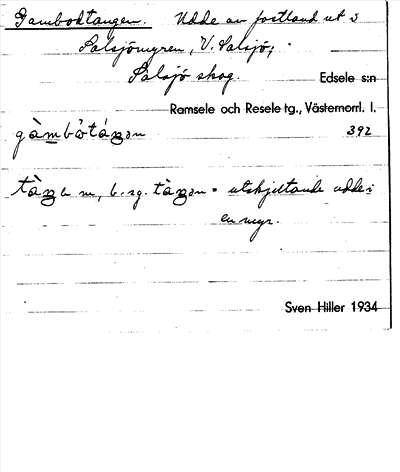 Gambodtangen. Udde av fastland ut i
Salsjömyren, V. Salsjö,
Salsjö skog. Edsele s:n
Ramsele och Resele tg., Västernorrl. l.
392
m, b. sg. = utskjutande udde i
en myr.
Sven Hiller 1934